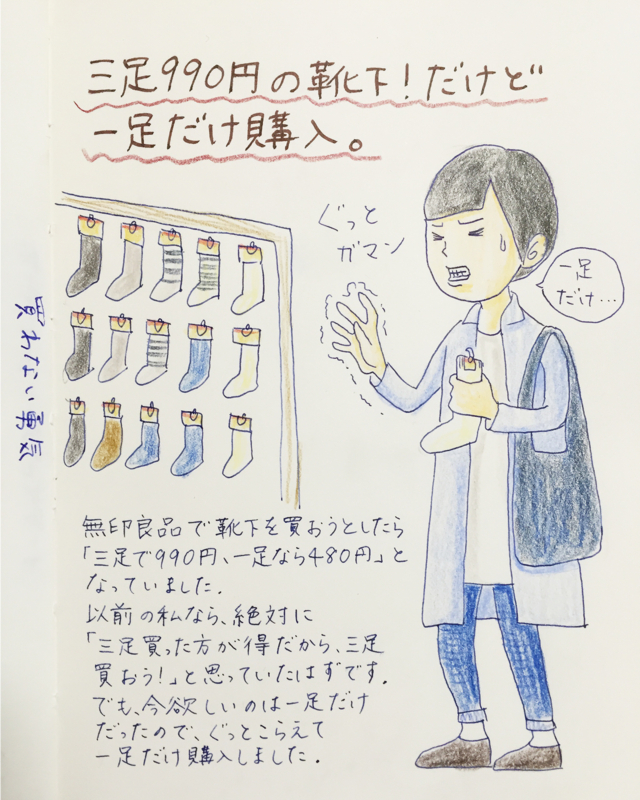 三足990円の靴下！だけど
一足だけ購入。
ぐっと
ガマン
一足
だけ…
買わない勇気
無印良品で靴下を買おうとしたら
「三足で990円、一足なら480円」と
なっていました.
以前の私なら、絶対に
「三足買った方が得だから、三足
買おう！」と思っていたはずです.
でも、今欲しいのは一足だけ
だったので、ぐっとこらえて
一足だけ購入しました.